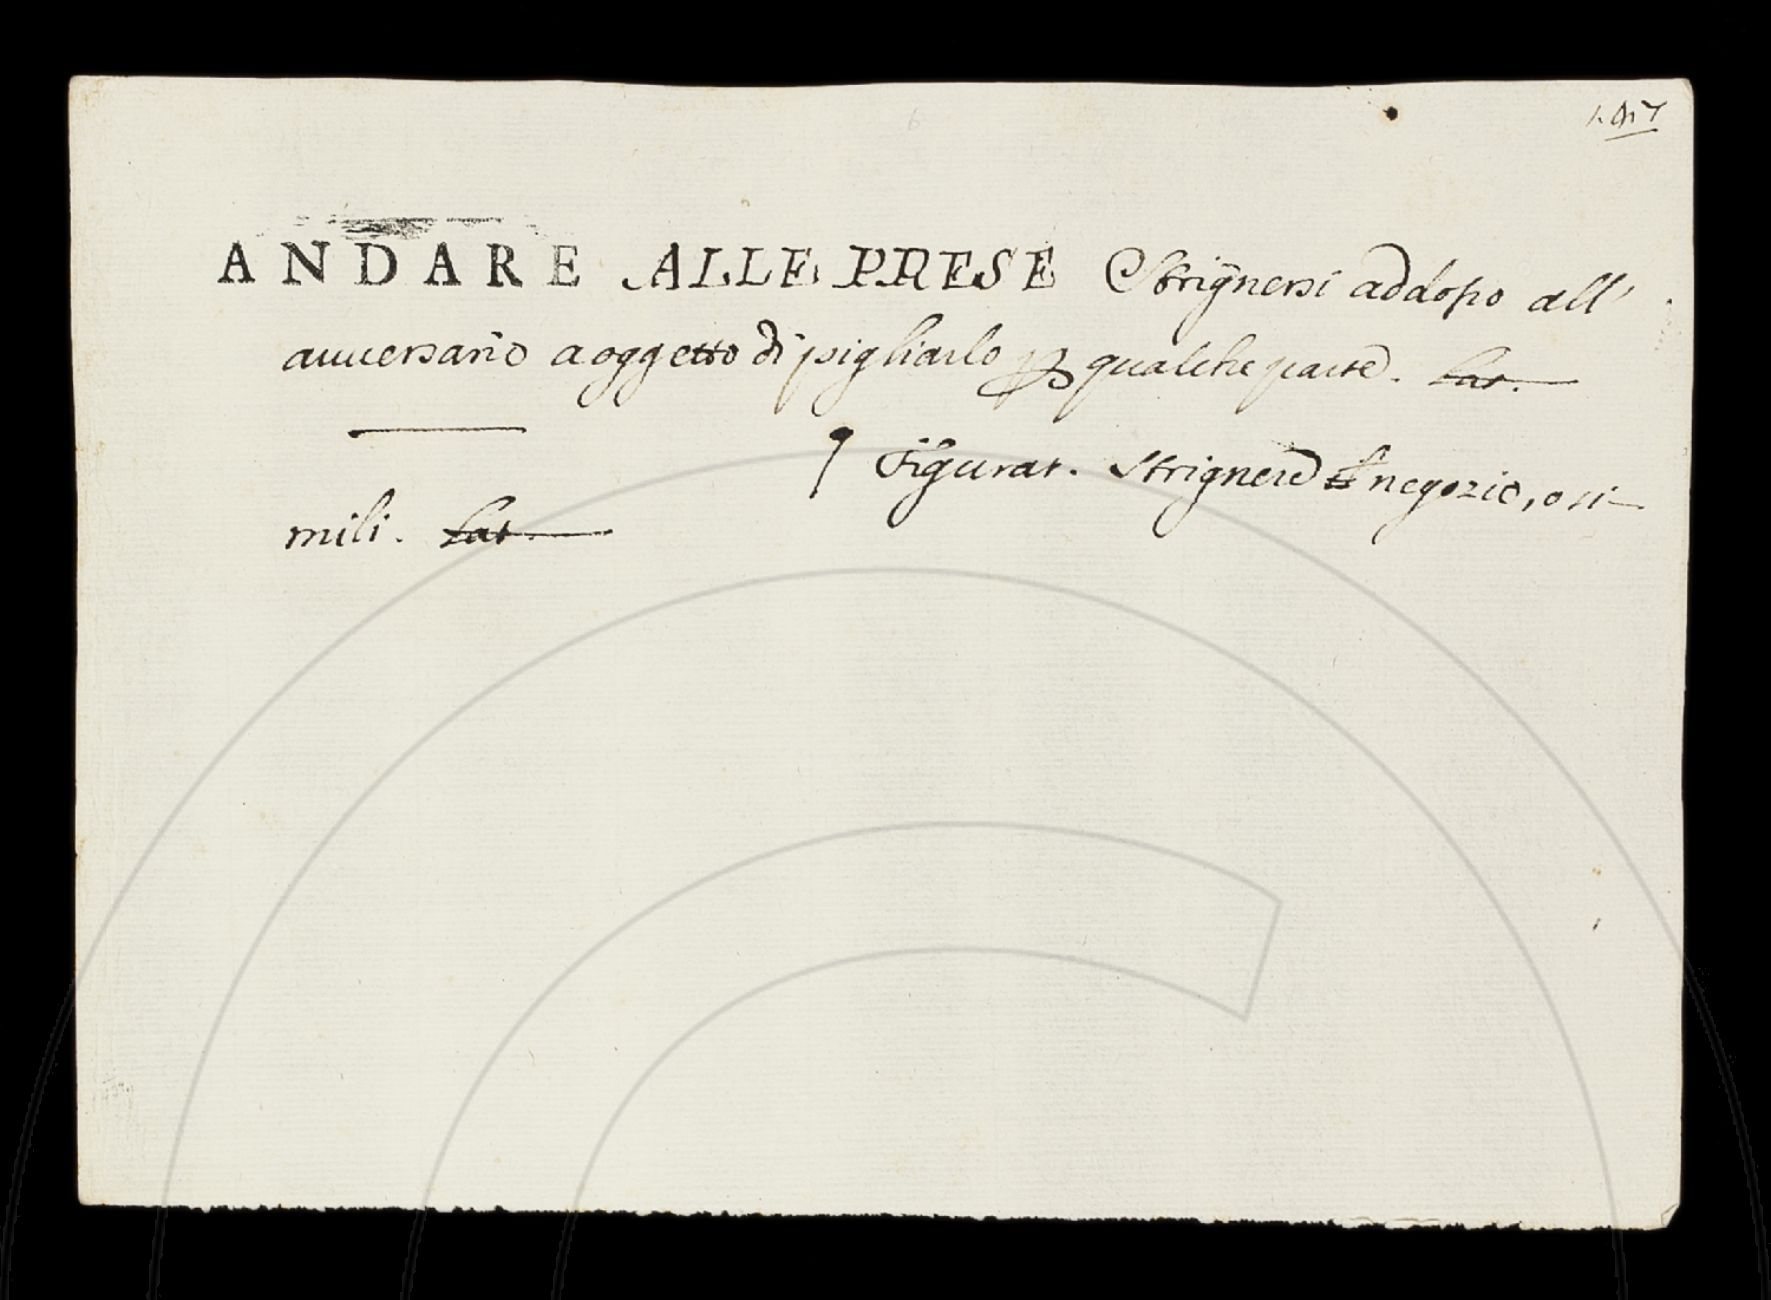 ANDARE ALLE PRESE Strignersi addosso all'
avversario a oggetto di pigliarlo ꝑ qualche parte. Lat.
¶ Figurat. Strignere negozio, o si-
mili. Lat.